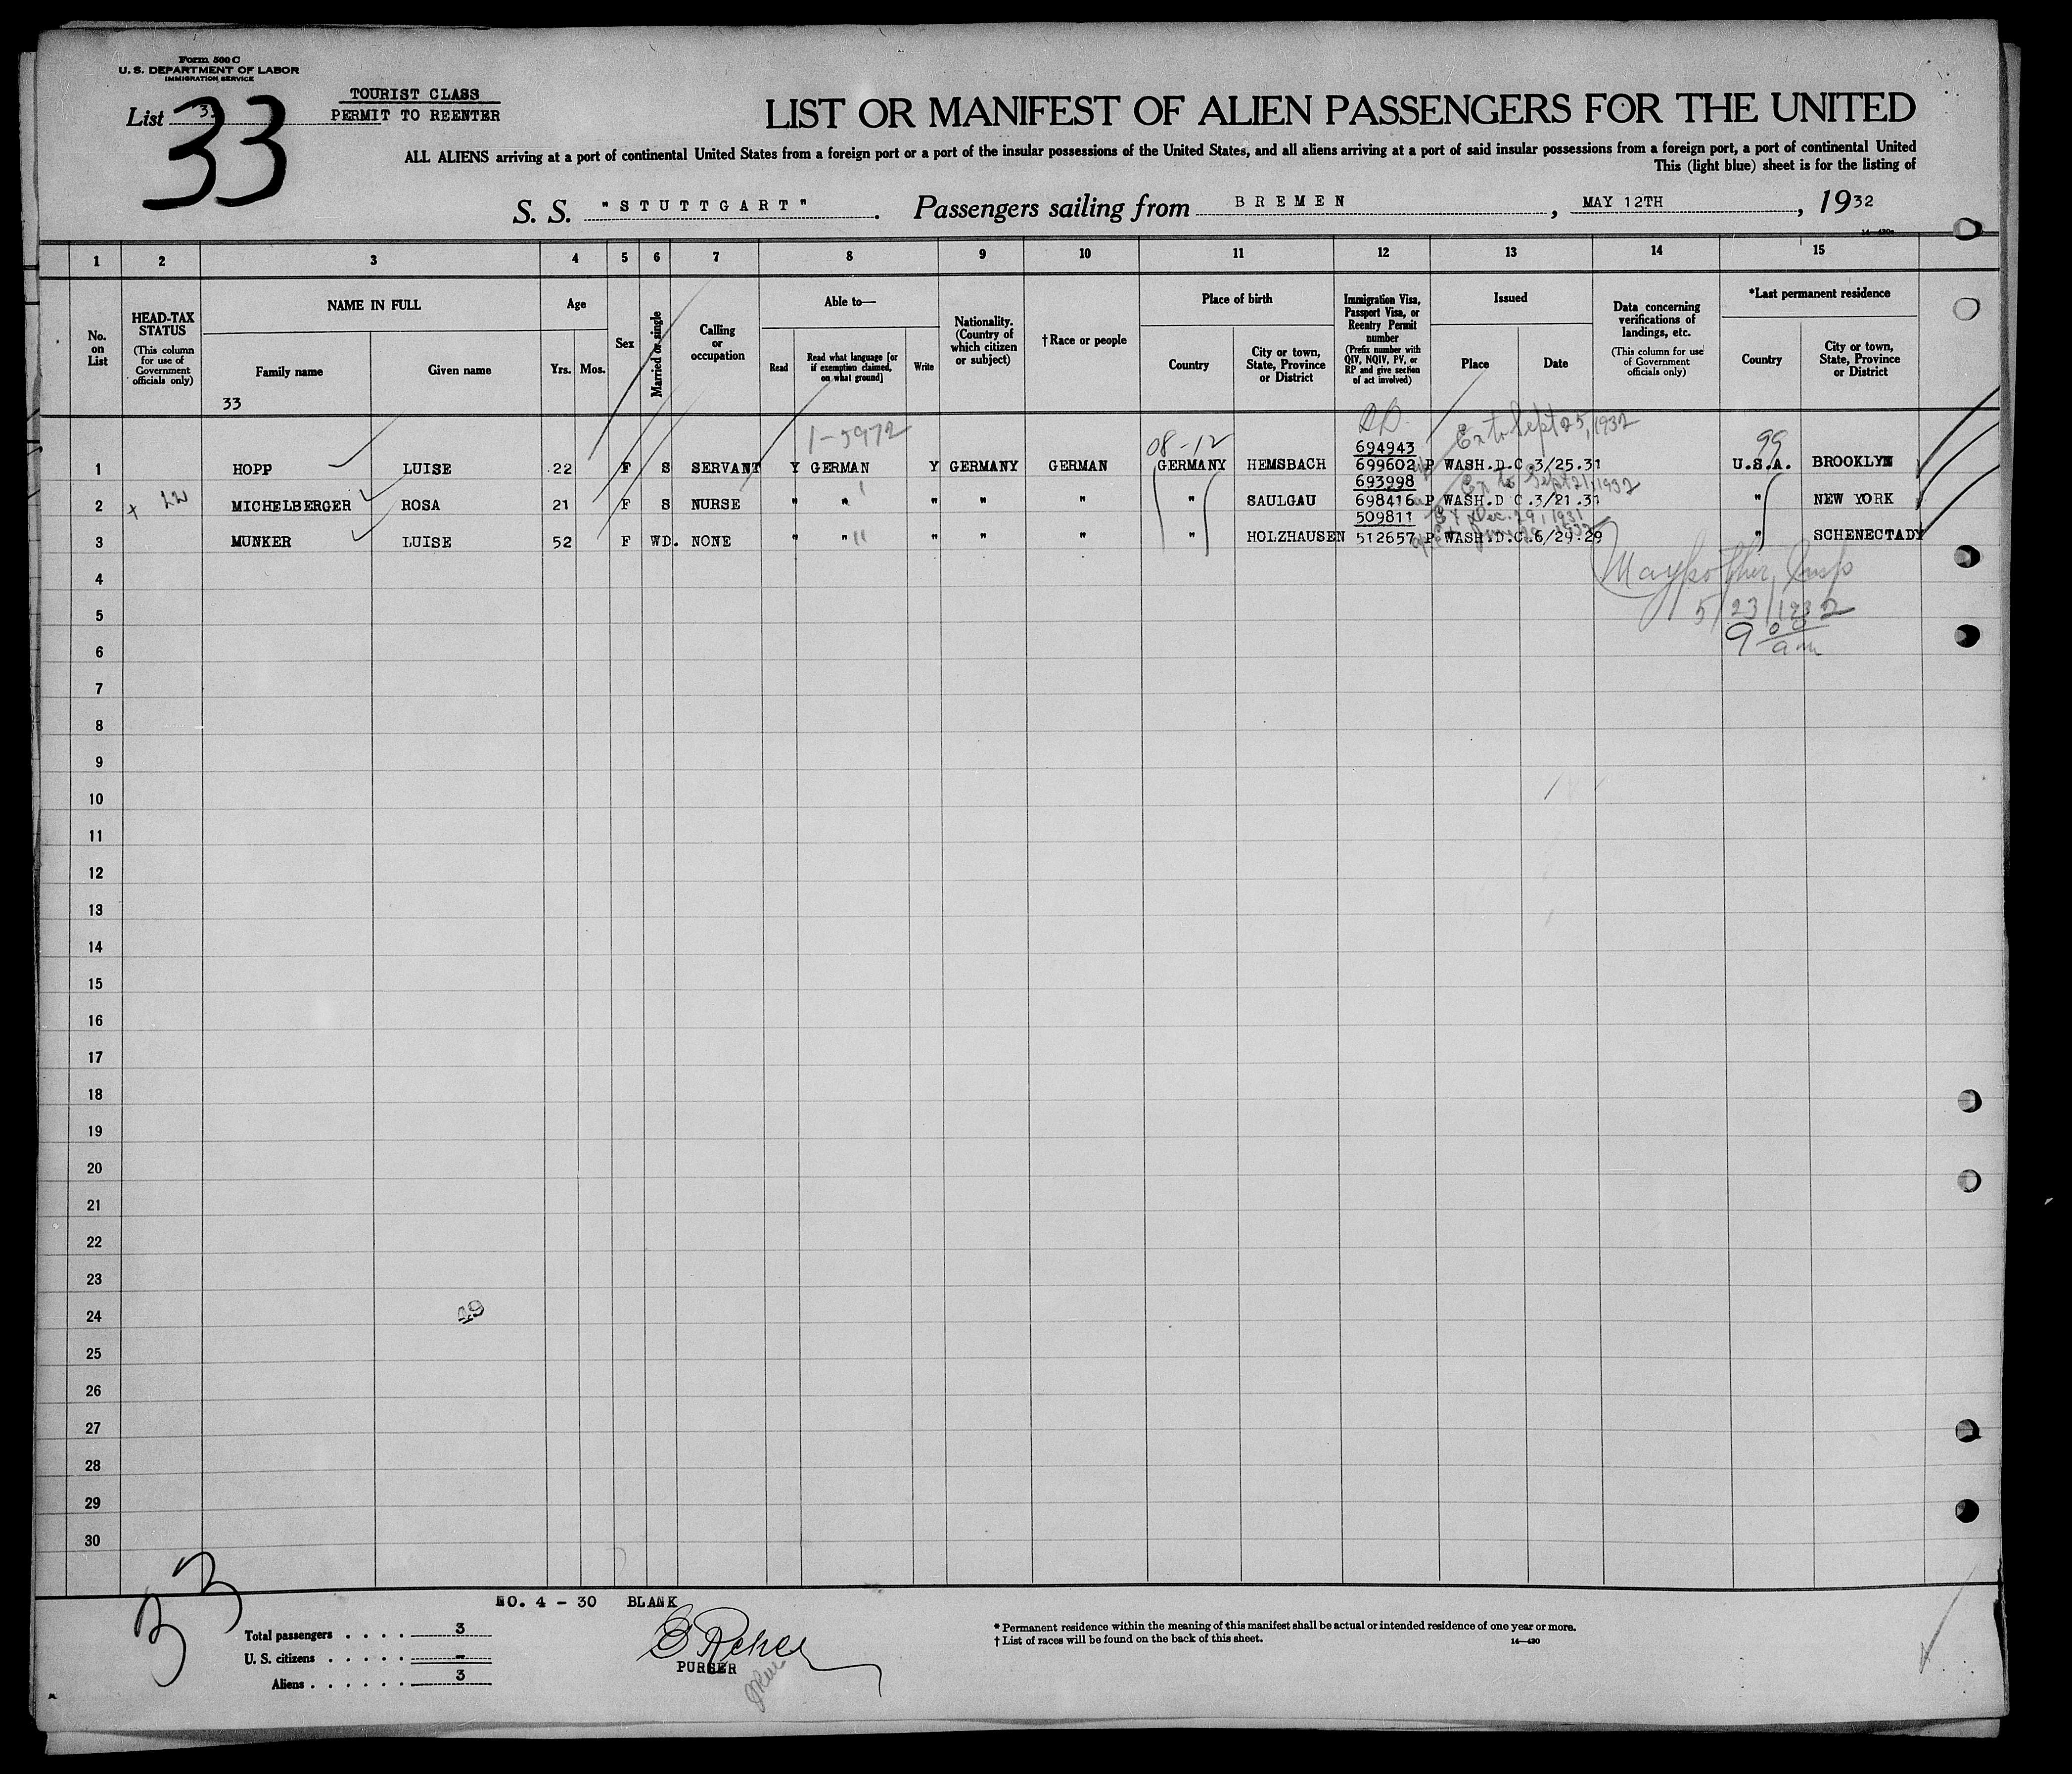 Form 500 C
U. S. DEPARTMENT OF LABOR
IMMIGRATION SERVICE
TOURIST CLASS
List 33
PERMIT TO REENTER
33
LIST OR MANIFEST OF ALIEN PASSENGERS FOR THE UNITED
ALL ALIENS arriving at a port of continental United States from a foreign port or a port of the insular possessions of the United States, and all aliens arriving at a port of said insular possessions from a foreign port, a port of continental United
This (light blue) sheet is for the listing of
S. S. "STUTTGART". Passengers sailing from BREMEN, MAY 12TH, 1932
14—430a
1 2 3 4 5 6 7 8 9 10 11 12 13 14 15
No. on List
HEAD-TAX STATUS (This column for use of Government officials only)
NAME IN FULL
Family name
Given name
33
Age
Yrs. Mos.
Sex
Married or single
Calling or occupation
Able to—
Read
Read what language [or if exemption claimed, on what ground]
Write
Nationality. (Country of which citizen or subject)
†Race or people
Place of birth
Country
City or town, State, Province or District
Immigration Visa, Passport Visa, or Reentry Permit number (Prefix number with QIV, NQIV, PV, or RP and give section of act involved)
Issued
Place
Date
Data concerning verifications of landings, etc. (This column for use of Government officials only)
*Last permanent residence
Country
City or town, State, Province or District
1-5972 08-12 Ex to Sept 25, 1932 99
694943
1 HOPP LUISE 22 F S SERVANT Y GERMAN Y GERMANY GERMAN GERMANY HEMSBACH 699602 P WASH.D.C. 3/25.31 U.S.A. BROOKLYN
693998 Ex to Sept 21, 1932
2 MICHELBERGER ROSA 21 F S NURSE " " " " " " SAULGAU 698416 P WASH.D.C. 3/21.31 " NEW YORK
509811 Ex Dec. 29, 1931
3 MUNKER LUISE 52 F WD. NONE " " " " " " HOLZHAUSEN 512657 P WASH.D.C. 6/29.29 " SCHENECTADY
4
5/23/1932
5
9 00 am
6
7
8
9
10
11
12
13
14
15
16
17
18
19
20
21
22
23
24 49
25
26
27
28
29
30
33
NO. 4 - 30 BLANK
Total passengers . . . . 3
U. S. citizens . . . . . -
Aliens . . . . . . 3
PURSER
* Permanent residence within the meaning of this manifest shall be actual or intended residence of one year or more.
† List of races will be found on the back of this sheet.
14—430